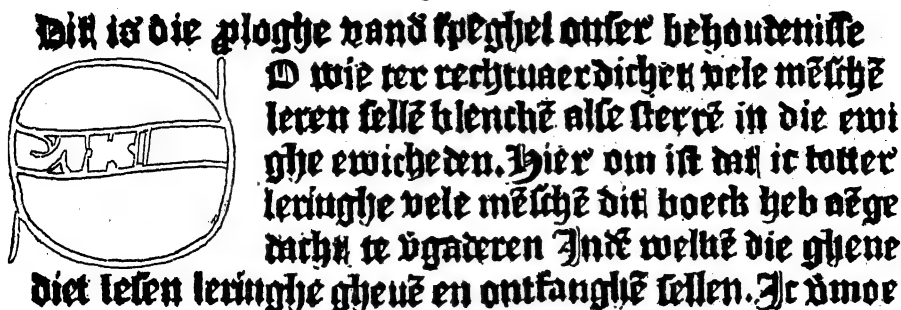 Dit is die ploghe vand spēghel onser behoudenisse
D wie ter rechtuaerdichet vele mēschē
leren sellē blenchē alse sterrē in die ewi
ghe ewicheden. Hier om ist dat ic totter
leringhe vele mēschē dit boeck heb aēge
dacht te v̄gaderen Indē welkē die ghene
diet lesen leringhe gheuē en ontfanghē sellen. Ic v̄moe